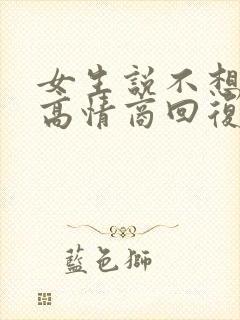 女生說不想
高情商回復
藍色獅